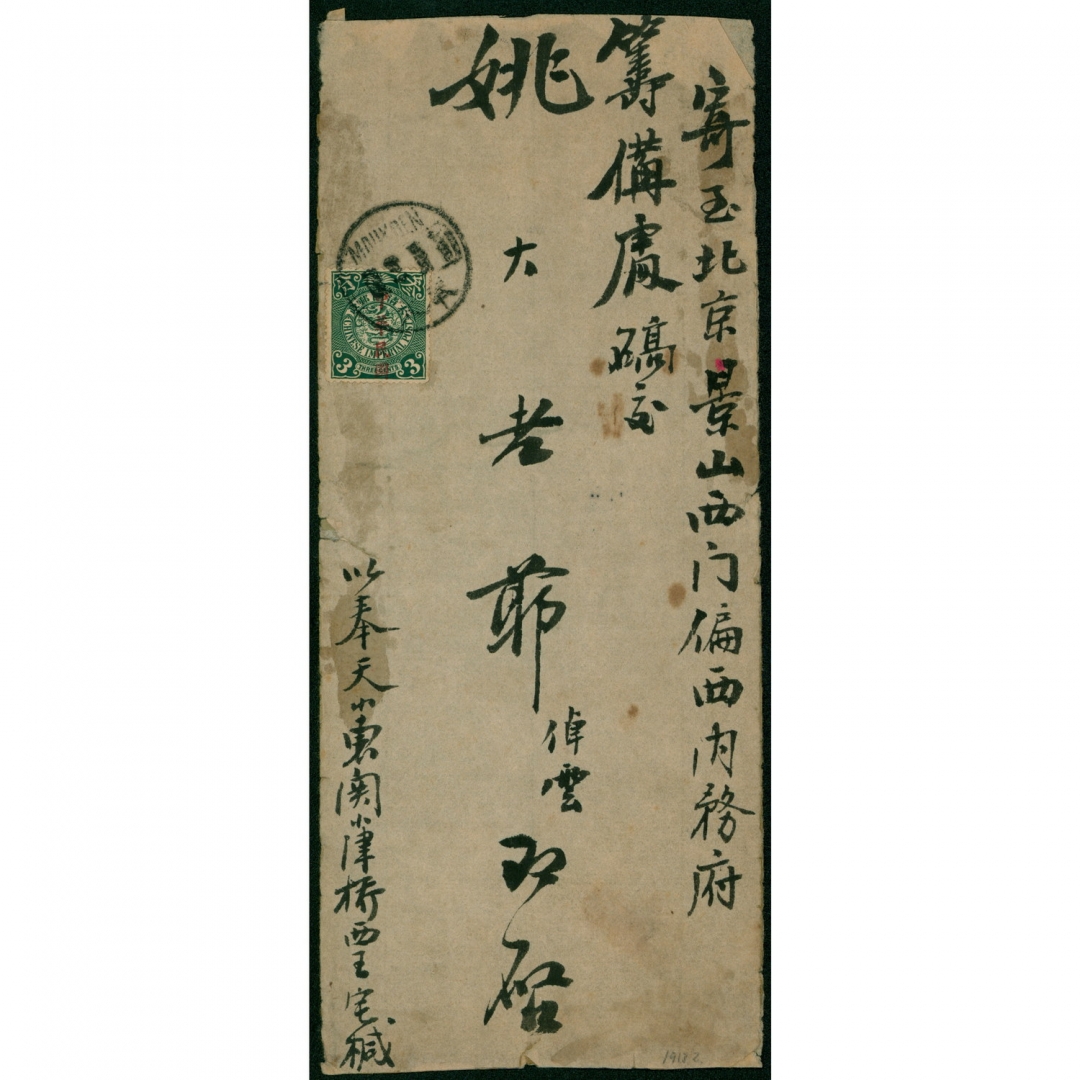 寄至北京景山西门偏西内務府
籌備處 確交
姚大老爺 倬雲 印啓
以奉天小東関小津橋西王宅椷
MOUKDEN
CHINESE IMPERIAL POST
3 THREE CENTS 3